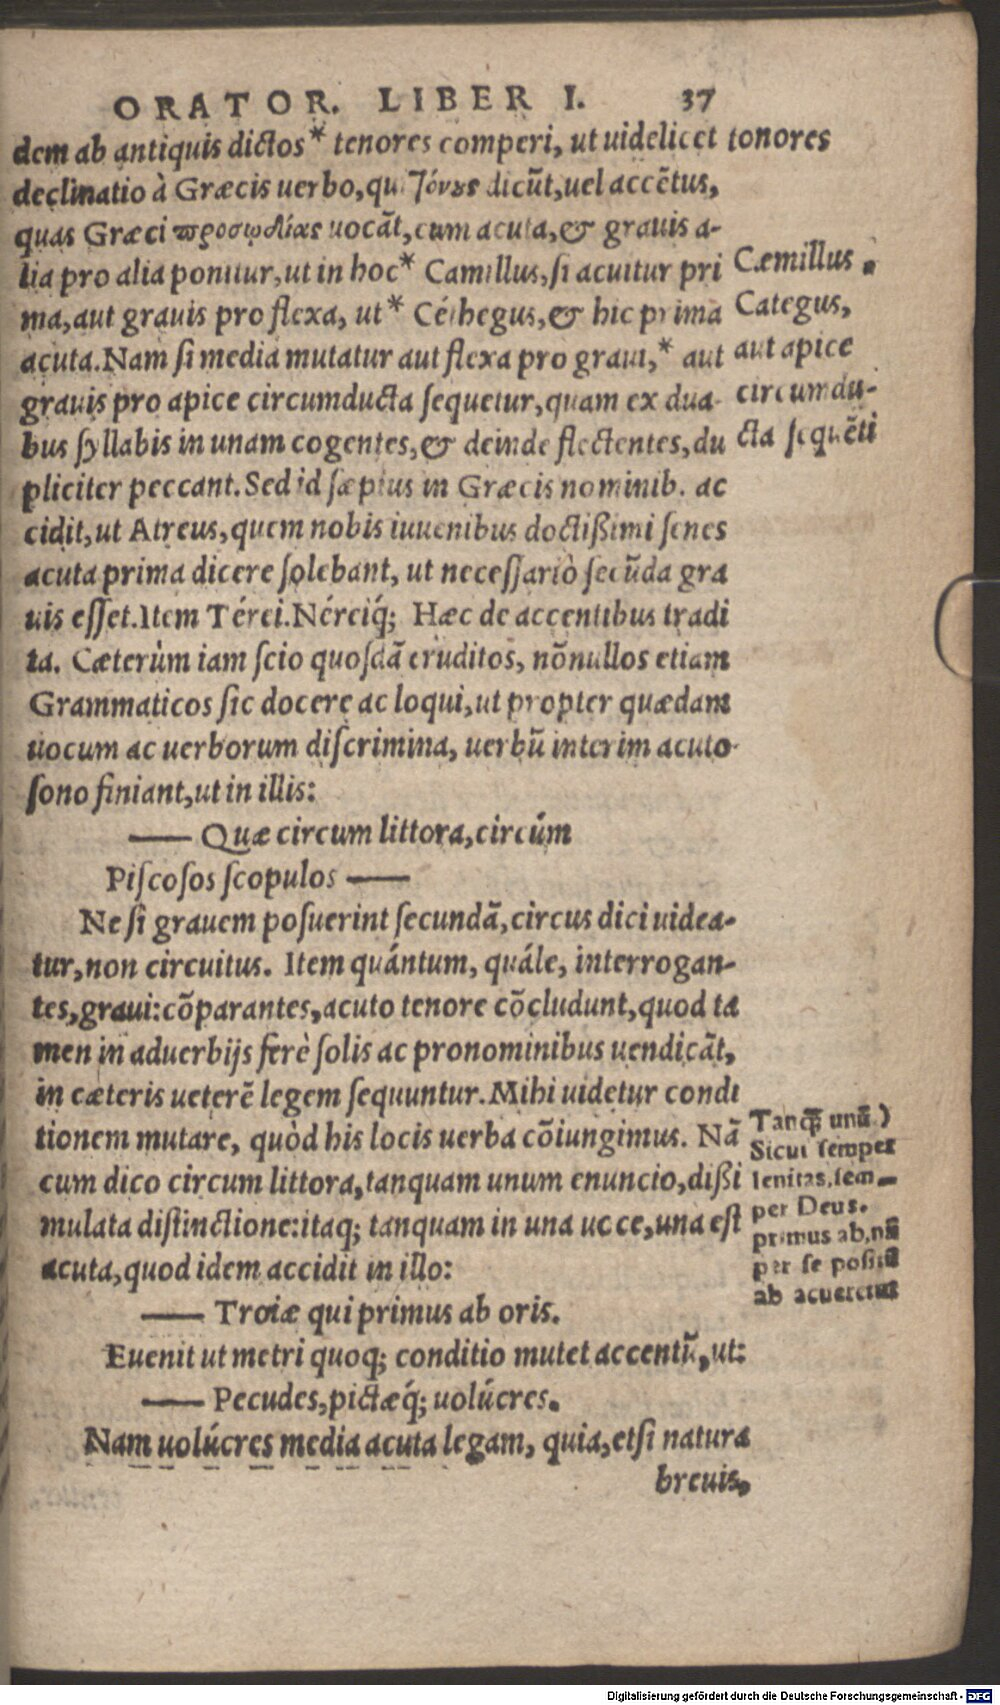 ORATOR. LIBER I. 37
dem ab antiquis dictos* tenores comperi, ut uidelicet
declinatio à Græcis uerbo, qui τόνους dicũt, uel accẽtus,
quas Græci προσῳδίας uocãt, cum acuta, & grauis a-
lia pro alia ponitur, ut in hoc* Camillus, si acuitur pri
ma, aut grauis pro flexa, ut* Céthegus, & hic prima
acuta. Nam si media mutatur aut flexa pro graui,* aut
grauis pro apice circumducta sequetur, quam ex dua-
bus syllabis in unam cogentes, & deinde flectentes, du
pliciter peccant. Sed id sæpius in Græcis nominib. ac
cidit, ut Atreus, quem nobis iuuenibus doctißimi senes
acuta prima dicere solebant, ut necessariò secũda gra
uis esset. Item Térei. Néreiq́; Hæc de accentibus tradi
ta. Cæterùm iam scio quosdã eruditos, nõnullos etiam
Grammaticos sic docere ac loqui, ut propter quædam
uocum ac uerborum discrimina, uerbũ interim acuto
sono finiant, ut in illis:
—— Quæ circum littora, circúm
Piscosos scopulos ——
Ne si grauem posuerint secundã, circus dici uidea-
tur, non circuitus. Item quántum, quále, interrogan-
tes, graui: cõparantes, acuto tenore cõcludunt, quod ta
men in aduerbijs ferè solis ac pronominibus uendicãt,
in cæteris ueterẽ legem sequuntur. Mihi uidetur condi
tionem mutare, quòd his locis uerba cõiungimus. Nã
cum dico circum littora, tanquam unum enuncio, dißi
mulata distinctione: itaq; tanquam in una uoce, una est
acuta, quod idem accidit in illo:
—— Troiæ qui primus ab oris.
Euenit ut metri quoq; conditio mutet accentũ, ut:
—— Pecudes, pictæq́; uolúcres.
Nam uolúcres media acuta legam, quia, etsi natura
breuis,
tonores
Cæmillus.
Categus,
aut apice
circumdu-
cta sequẽti
Tanq̃ unũ)
Sicut semper
lenitas, sem-
per Deus.
primus ab, nã
per se positũ
ab acueretur
Digitalisierung gefördert durch die Deutsche Forschungsgemeinschaft - DFG